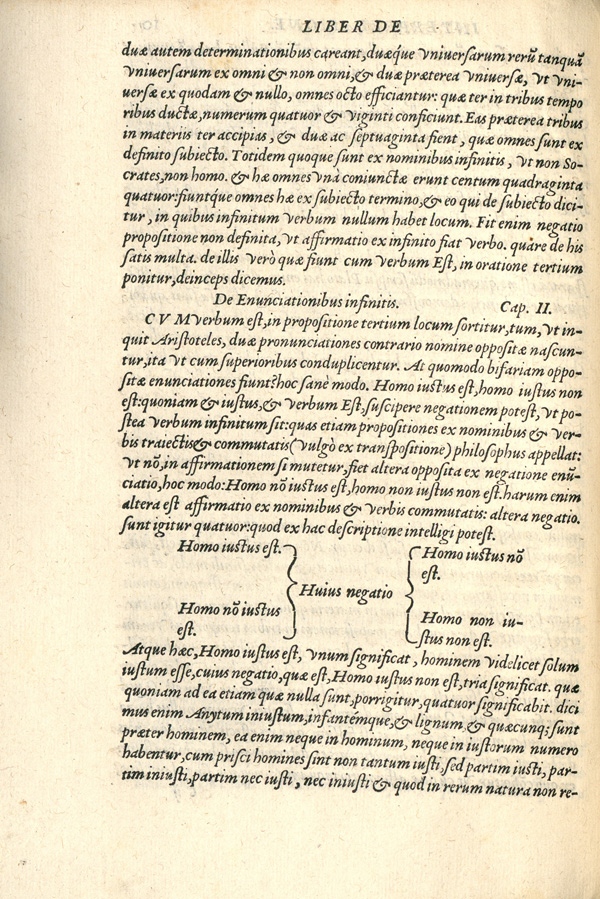 LIBER DE
duæ autem determinationibus careant, duæq́ue vniuersarum rerũ tanquã
vniuersarum ex omni & non omni, & duæ præterea vniuersæ, vt vni-
uersæ ex quodam & nullo, omnes octo efficiantur: quæ ter in tribus tempo
ribus ductæ, numerum quatuor & viginti conficiunt. Eas præterea tribus
in materiis ter accipias, & duæ ac septuaginta fient, quæ omnes sunt ex
definito subiecto. Totidem quoque sunt ex nominibus infinitis, vt non So-
crates, non homo. & hæ omnes vnà coniunctæ erunt centum quadraginta
quatuor: fiuntq́ue omnes hæ ex subiecto termino, & eo qui de subiecto dici-
tur, in quibus infinitum verbum nullum habet locum. Fit enim negatio
propositione non definita, vt affirmatio ex infinito fiat verbo. quare de his
satis multa. de illis verò quæ fiunt cum verbum Est, in oratione tertium
ponitur, deinceps dicemus.
De Enunciationibus infinitis. Cap. II.
CVM verbum est, in propositione tertium locum sortitur, tum, vt in-
quit Aristoteles, duæ pronunciationes contrario nomine oppositæ nascun-
tur, ita vt cum superioribus conduplicentur. At quomodo bifariam oppo-
sitæ enunciationes fiunt? hoc sanè modo. Homo iustus est, homo iustus non
est: quoniam & iustus, & verbum Est, suscipere negationem potest, vt po-
stea verbum infinitum sit: quas etiam propositiones ex nominibus & ver-
bis traiectis & commutatis (vulgò ex transpositione) philosophus appellat:
vt nõ, in affirmationem si mutetur, fiet altera opposita ex negatione enũ-
ciatio, hoc modo: Homo nõ iustus est, homo non iustus non est. harum enim
altera est affirmatio ex nominibus & verbis commutatis: altera negatio.
sunt igitur quatuor: quod ex hac descriptione intelligi potest.
Homo iustus est. Homo iustus nõ
est.
Huius negatio
Homo nõ iustus Homo non iu-
est. stus non est.
Atque hæc, Homo iustus est, vnum significat, hominem videlicet solum
iustum esse, cuius negatio, quæ est, Homo iustus non est, tria significat. quæ
quoniam ad ea etiam quæ nulla sunt, porrigitur, quatuor significabit. dici
mus enim Anytum iniustum, infantémque, & lignum & quæcunq; sunt
præter hominem, ea enim neque in hominum, neque in iustorum numero
habentur, cum prisci homines sint non tantum iusti, sed partim iusti, par-
tim iniusti, partim nec iusti, nec iniusti & quod in rerum natura non re-